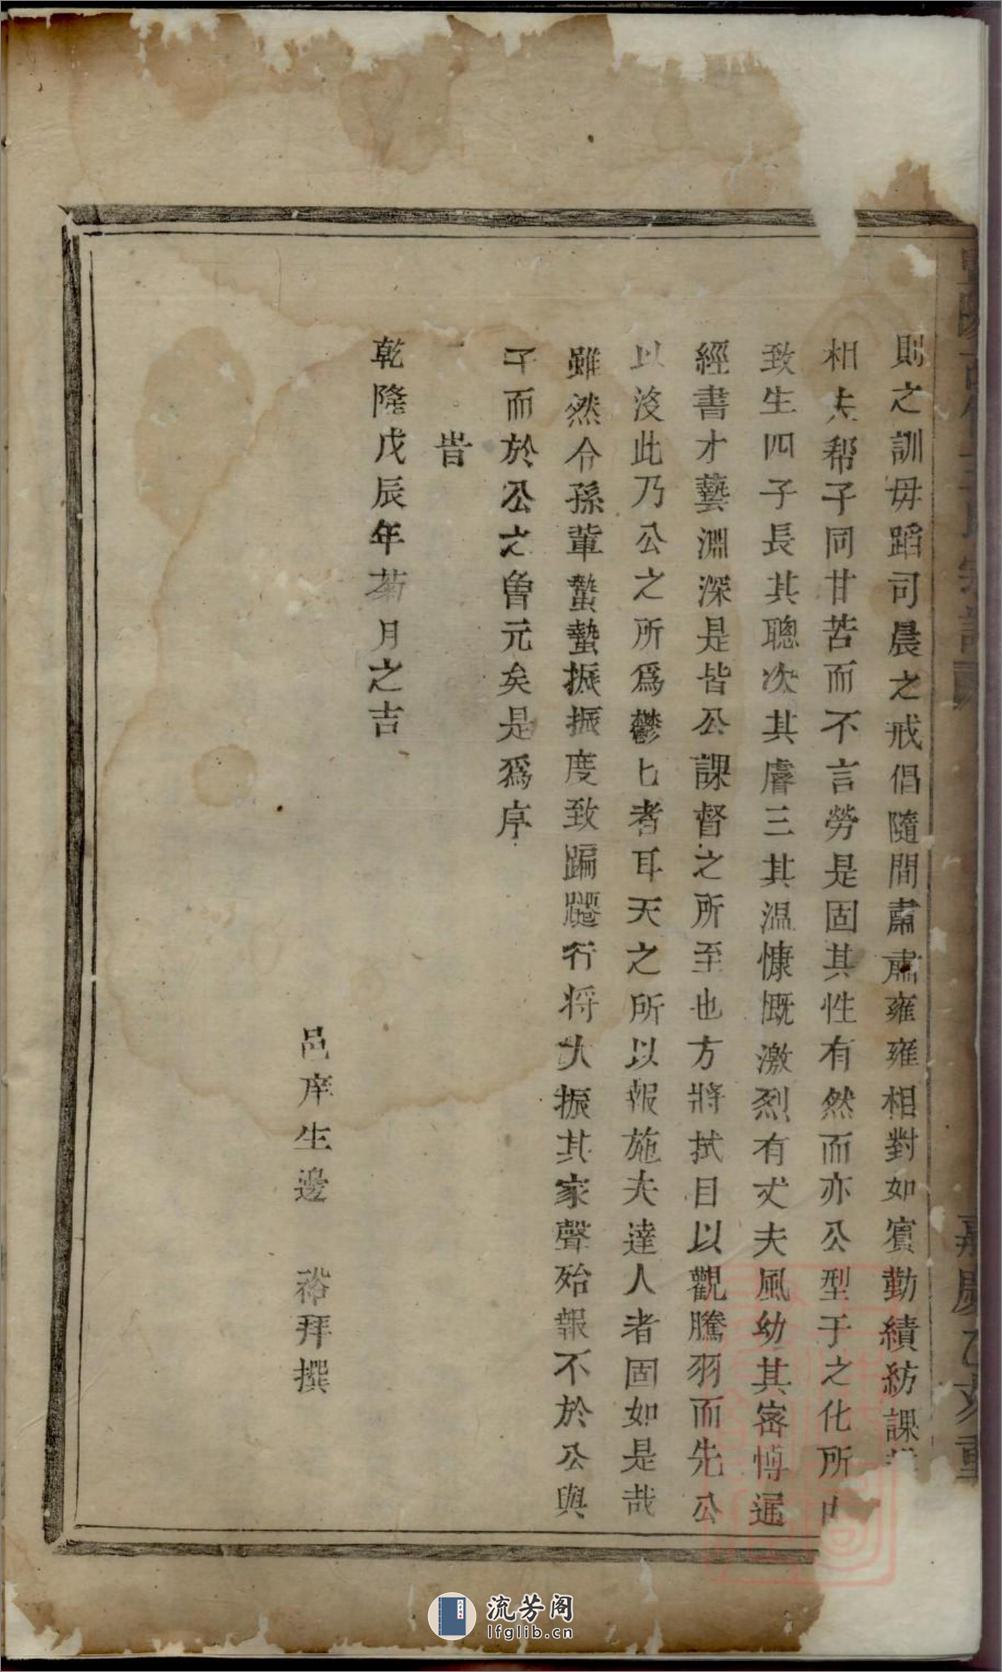 則之訓毋蹈司晨之戒倡隨間肅肅雍雍相對如賓勤績紡課
相夫帮子同甘苦而不言勞是固其性有然而亦公型于之化所
致生四子長其聰次其睿三其温慷慨激烈有丈夫風幼其密博通
經書才藝淵深是皆公課督之所至也方將拭目以觀騰羽而先公
以沒此乃公之所爲鬱匕者耳天之所以報施夫達人者固如是哉
雖然令孫輩蟄蟄振振度致蹁躚行将大振其家聲殆報不於公與
子而於公之曾元矣是爲序
旹
乾隆戊辰年菊月之吉
邑庠生邊 裕拜撰
嘉慶乙亥重
流芳阁
lfglib.cn